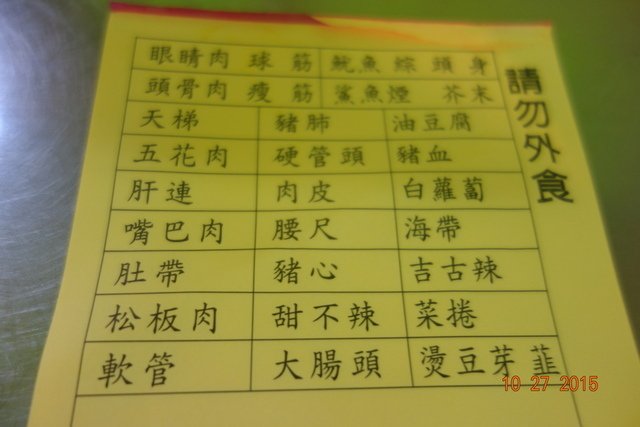 眼睛肉 球 筋 魷魚 綜 頭 身
頭骨肉 瘦 筋 鯊魚煙 芥末
天梯 豬肺 油豆腐
五花肉 硬管頭 豬血
肝連 肉皮 白蘿蔔
嘴巴肉 腰尺 海帶
肚帶 豬心 吉古辣
松板肉 甜不辣 菜捲
軟管 大腸頭 燙豆芽 韮
請勿外食
10 27 2015